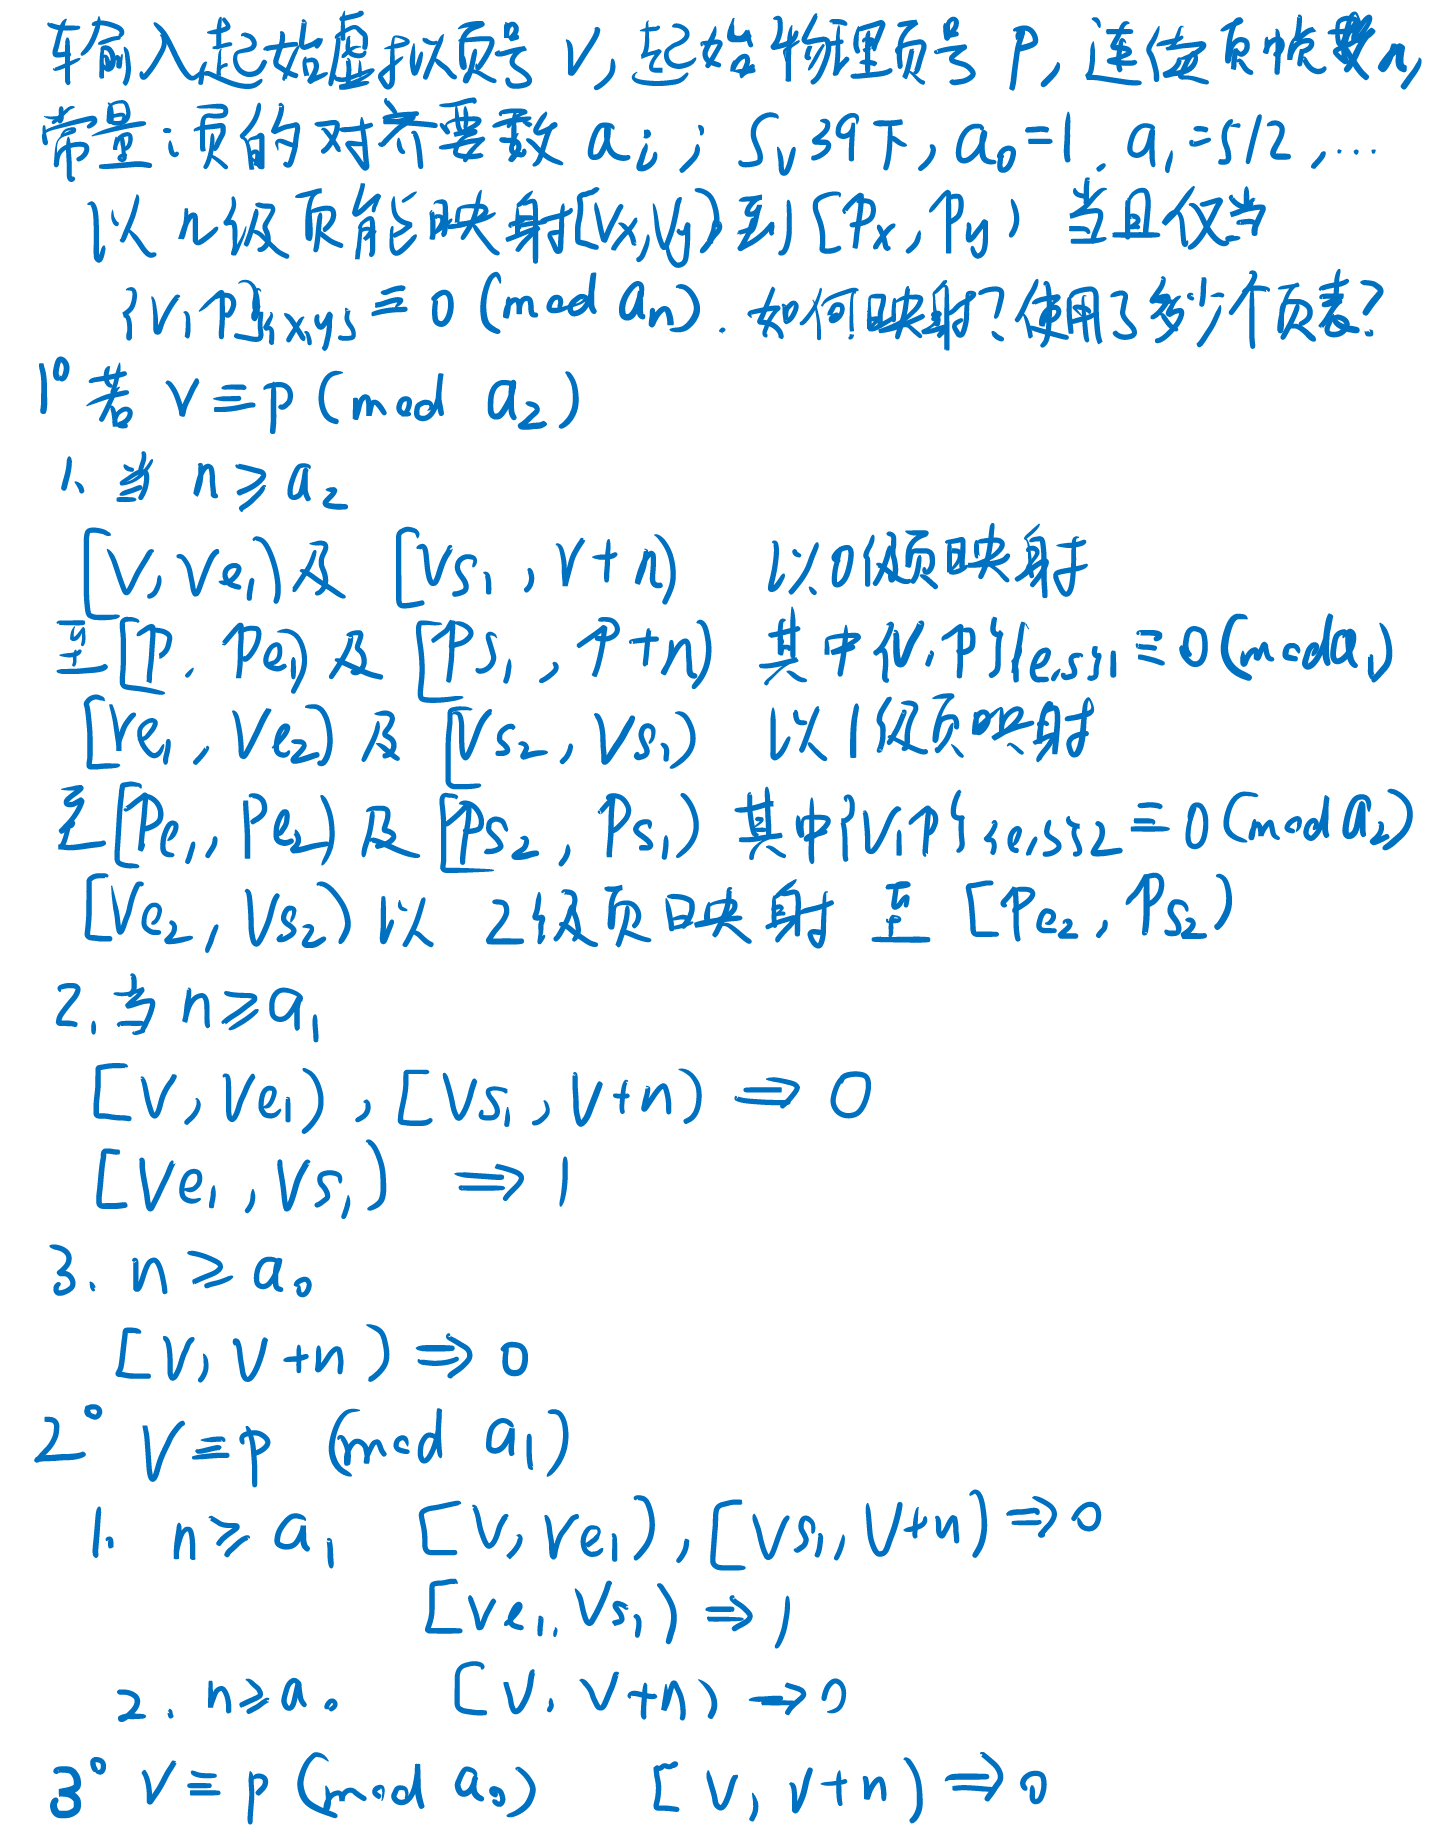 输入起始虚拟页号 V, 起始物理页号 P, 连续页帧数n,
常量i页的对齐要数 ai; Sv39下, a0=1, a1=512,…
以 n级页能映射[Vx,Vy)到[Px,Py) 当且仅当
{V,P}{x,y} ≡ 0 (mod an). 如何映射?使用了多少个页表?
1° 若 V≡P (mod a2)
1. 当 n≥a2
[V, Ve1)及 [Vs1, V+n) 以0级页映射
至[P, Pe1)及 [Ps1, P+n) 其中{V,P}{e,s}1≡0(mod a1)
[Ve1, Ve2)及 [Vs2, Vs1) 以1级页映射
至[Pe1, Pe2)及 [Ps2, Ps1) 其中{V,P}{e,s}2≡0(mod a2)
[Ve2, Vs2)以 2级页映射 至 [Pe2, Ps2)
2. 当 n≥a1
[V, Ve1), [Vs1, V+n) ⇒ 0
[Ve1, Vs1) ⇒ 1
3. n≥a0
[V, V+n) ⇒ 0
2° V≡P (mod a1)
1. n≥a1 [V, Ve1), [Vs1, V+n)⇒0
[Ve1, Vs1)⇒1
2. n≥a0 [V, V+n)→0
3° V≡P (mod a0) [V, V+n)⇒0